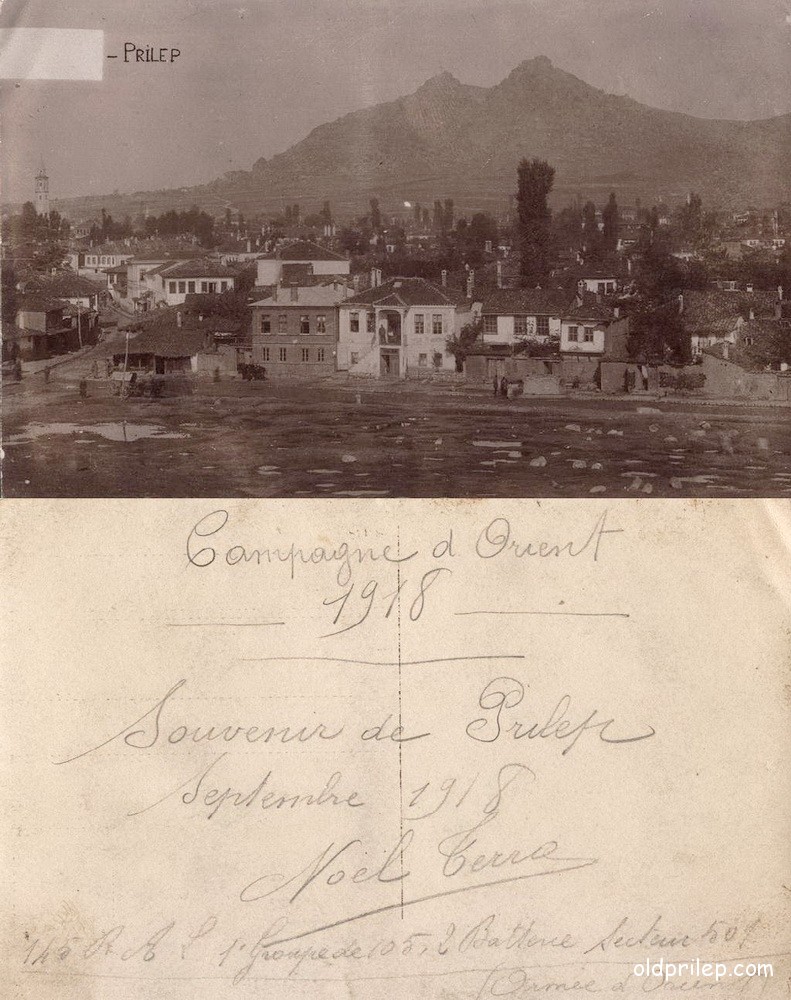 - PRILEP
Campagne d Orient
1918
Souvenir de Prilep
Septembre 1918
Noël Terra
145 R A L 1r Groupe de 105, 2 Batterie Secteur 501
(Armée d'Orient)
oldprilep.com